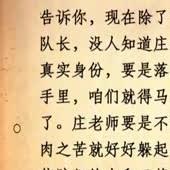 告诉你，现在除了
队长，没人知道庄
真实身份，要是落
手里，咱们就得马
了。庄老师要是不
肉之苦就好好躲起